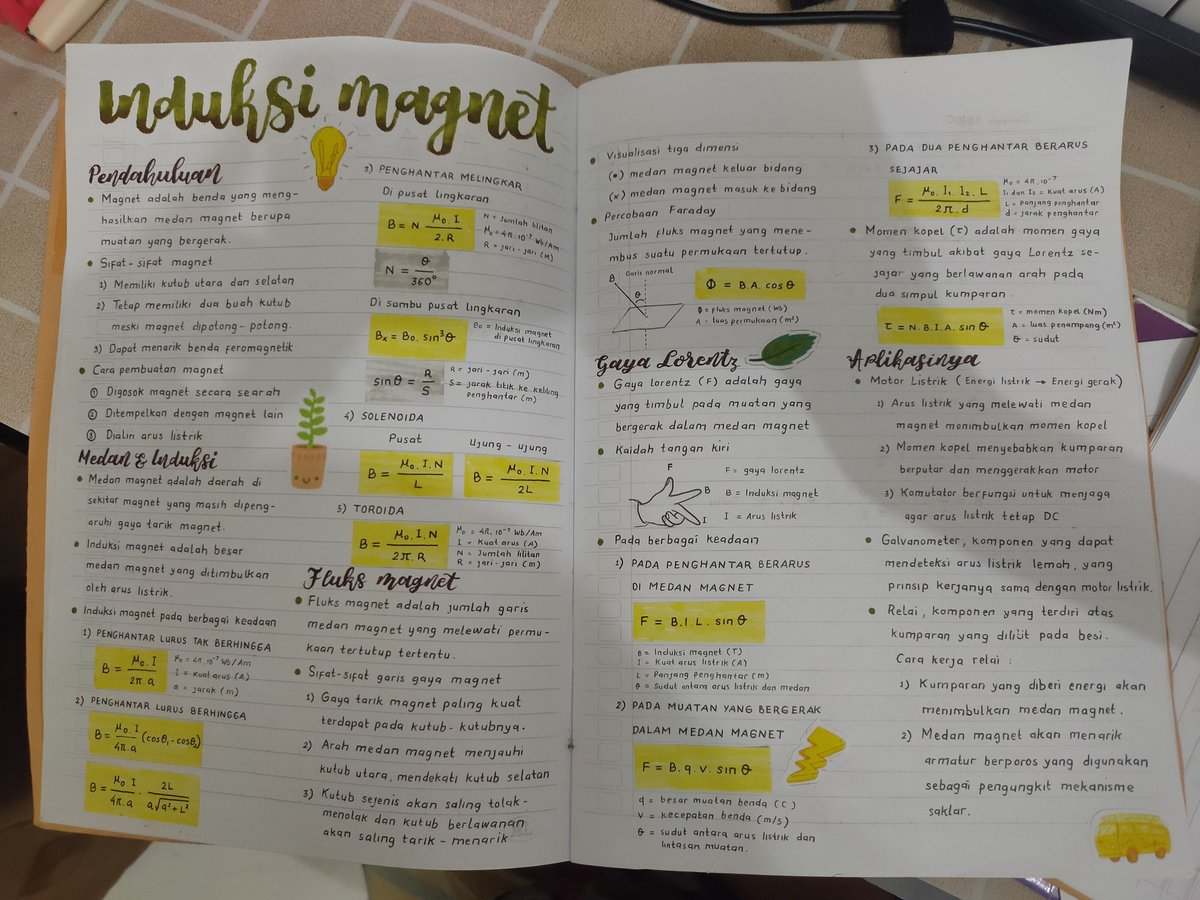 Induksi magnet
Pendahuluan
Magnet adalah benda yang meng-
hasilkan medan magnet berupa
muatan yang bergerak.
Sifat-sifat magnet
1) Memiliki kutub utara dan selatan
2) Tetap memiliki dua buah kutub
meski magnet dipotong-potong.
3) Dapat menarik benda feromagnetik
Cara pembuatan magnet
① Digosok magnet secara searah
② Ditempelkan dengan magnet lain
③ Dialiri arus listrik
Medan & Induksi
Medan magnet adalah daerah di
sekitar magnet yang masih dipeng-
aruhi gaya tarik magnet.
Induksi magnet adalah besar
medan magnet yang ditimbulkan
oleh arus listrik.
Induksi magnet pada berbagai keadaan
1) PENGHANTAR LURUS TAK BERHINGGA
B = μ₀.I / 2π.a
μ₀ = 4π.10⁻⁷ Wb/Am
I = Kuat arus (A)
a = jarak (m)
2) PENGHANTAR LURUS BERHINGGA
B = μ₀.I / 4π.a (cosθ₁ - cosθ₂)
B = μ₀.I / 4π.a . 2L / a√a²+L²
3) PENGHANTAR MELINGKAR
Di pusat lingkaran
B = N μ₀.I / 2.R
N = Jumlah lilitan
μ₀ = 4π.10⁻⁷ Wb/Am
R = jari-jari (M)
N = θ / 360°
Di sumbu pusat lingkaran
Bx = Bo. sin³θ
Bo = Induksi magnet
di pusat lingkaran
sin θ = R / S
R = jari-jari (m)
S = jarak titik ke keliling
penghantar (m)
4) SOLENOIDA
Pusat
Ujung-ujung
B = μ₀.I.N / L
B = μ₀.I.N / 2L
5) TOROIDA
B = μ₀.I.N / 2π.R
μ₀ = 4π.10⁻⁷ Wb/Am
I = Kuat arus (A)
N = Jumlah lilitan
R = jari-jari (m)
Fluks magnet
Fluks magnet adalah jumlah garis
medan magnet yang melewati permu-
kaan tertutup tertentu.
Sifat-sifat garis gaya magnet
1) Gaya tarik magnet paling kuat
terdapat pada kutub-kutubnya.
2) Arah medan magnet menjauhi
kutub utara, mendekati kutub selatan
3) Kutub sejenis akan saling tolak-
menolak dan kutub berlawanan
akan saling tarik-menarik
Visualisasi tiga dimensi
(•) medan magnet keluar bidang
(x) medan magnet masuk ke bidang
Percobaan Faraday
Jumlah fluks magnet yang mene-
mbus suatu permukaan tertutup.
B
Garis normal
θ
Φ = B.A. cos θ
Φ = fluks magnet (Wb)
A = luas permukaan (m²)
Gaya Lorentz
Gaya lorentz (F) adalah gaya
yang timbul pada muatan yang
bergerak dalam medan magnet
Kaidah tangan kiri
F
B
I
F = gaya lorentz
B = Induksi magnet
I = Arus listrik
Pada berbagai keadaan
1) PADA PENGHANTAR BERARUS
DI MEDAN MAGNET
F = B.I.L. sin θ
B = Induksi magnet (T)
I = Kuat arus listrik (A)
L = Panjang penghantar (m)
θ = Sudut antara arus listrik dan medan
2) PADA MUATAN YANG BERGERAK
DALAM MEDAN MAGNET
F = B.q.v. sin θ
q = besar muatan benda (C)
v = kecepatan benda (m/s)
θ = sudut antara arus listrik dan
lintasan muatan.
3) PADA DUA PENGHANTAR BERARUS
SEJAJAR
F = μ₀. I₁. I₂. L / 2π.d
μ₀ = 4π.10⁻⁷
I₁ dan I₂ = Kuat arus (A)
L = Panjang penghantar
d = jarak penghantar
Momen kopel (τ) adalah momen gaya
yang timbul akibat gaya Lorentz se-
jajar yang berlawanan arah pada
dua simpul kumparan.
τ = N.B.I.A. sin θ
τ = momen kopel (Nm)
A = luas penampang (m²)
θ = sudut
Aplikasinya
Motor Listrik (Energi listrik → Energi gerak)
1) Arus listrik yang melewati medan
magnet menimbulkan momen kopel
2) Momen kopel menyebabkan kumparan
berputar dan menggerakkan motor
3) Komutator berfungsi untuk menjaga
agar arus listrik tetap DC
Galvanometer, komponen yang dapat
mendeteksi arus listrik lemah, yang
prinsip kerjanya sama dengan motor listrik.
Relai, komponen yang terdiri atas
kumparan yang dililit pada besi.
Cara kerja relai :
1) Kumparan yang diberi energi akan
menimbulkan medan magnet.
2) Medan magnet akan menarik
armatur berporos yang digunakan
sebagai pengungkit mekanisme
saklar.